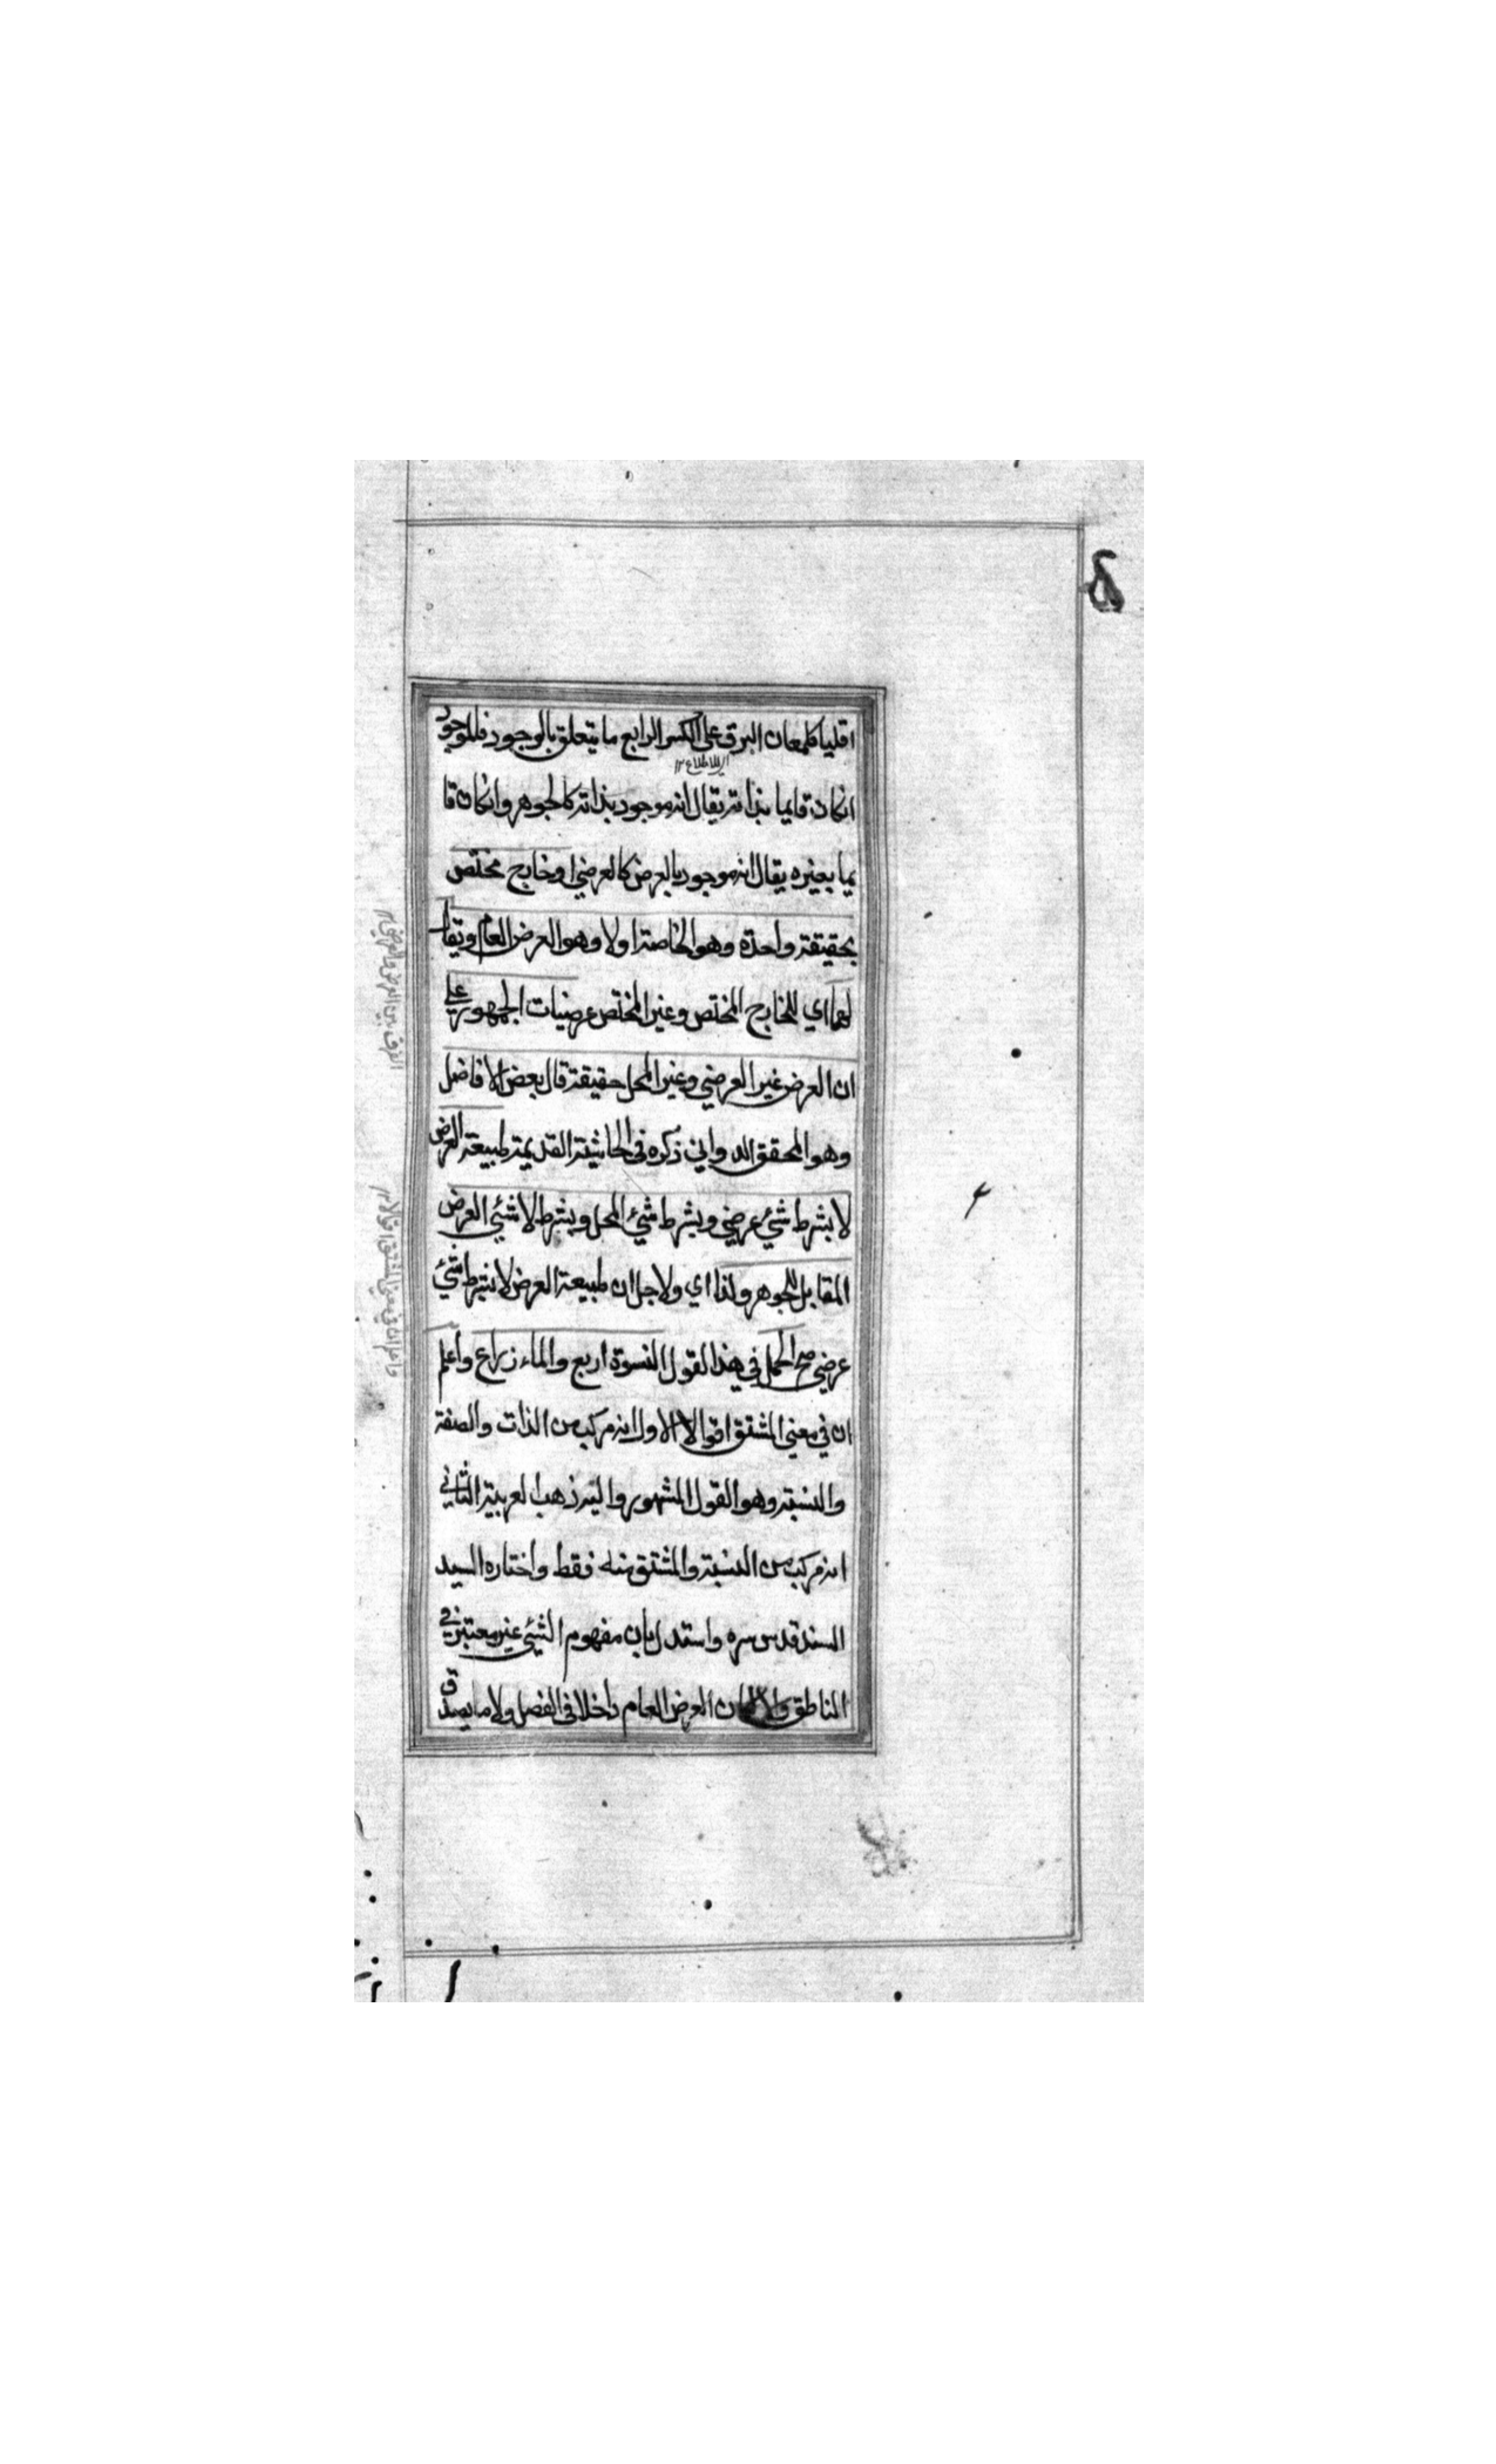 اقليا كلمعان البرق على الكسر الرابع ما يتعلق بالوجود فالموجود
انكان قايما بذاته يقال انه موجود بذاته كالجوهر وانكان قا
يما بغيره يقال انه موجود بالعرض كالعرضي او خارج مختص
بحقيقة واحدة وهو الخاصة اولا وهو العرض العام ويقال
لهما اي للخارج المختص وغير المختص عرضيات الجمهور على
ان العرض غير العرضي وغير المحل حقيقة قال بعض الافاضل
وهو المحقق الدواني ذكره في الحاشية القديمة طبيعة العرض
لا بشرط شيء عرضي وبشرط شيء المحل وبشرط لا شيء العرض
المقابل للجوهر ولذا اي ولاجل ان طبيعة العرض لا بشرط شيء
عرضي صح الحمل في هذا القول النسوة اربع والماء ذراع واعلم
ان في معنى المشتق اقوالا الاول انه مركب من الذات والصفة
والنسبة وهو القول المشهور واليه ذهب العربية الثاني
انه مركب من النسبة والمشتق منه فقط واختاره السيد
السند قدس سره واستدل بان مفهوم الشيء غير معتبر في
الناطق والا لكان العرض العام داخلا في الفصل ولا ما يصدق
الفرق بين العرض والعرضي ١٢
واعلم ان في معنى المشتق اقوالا ١٢